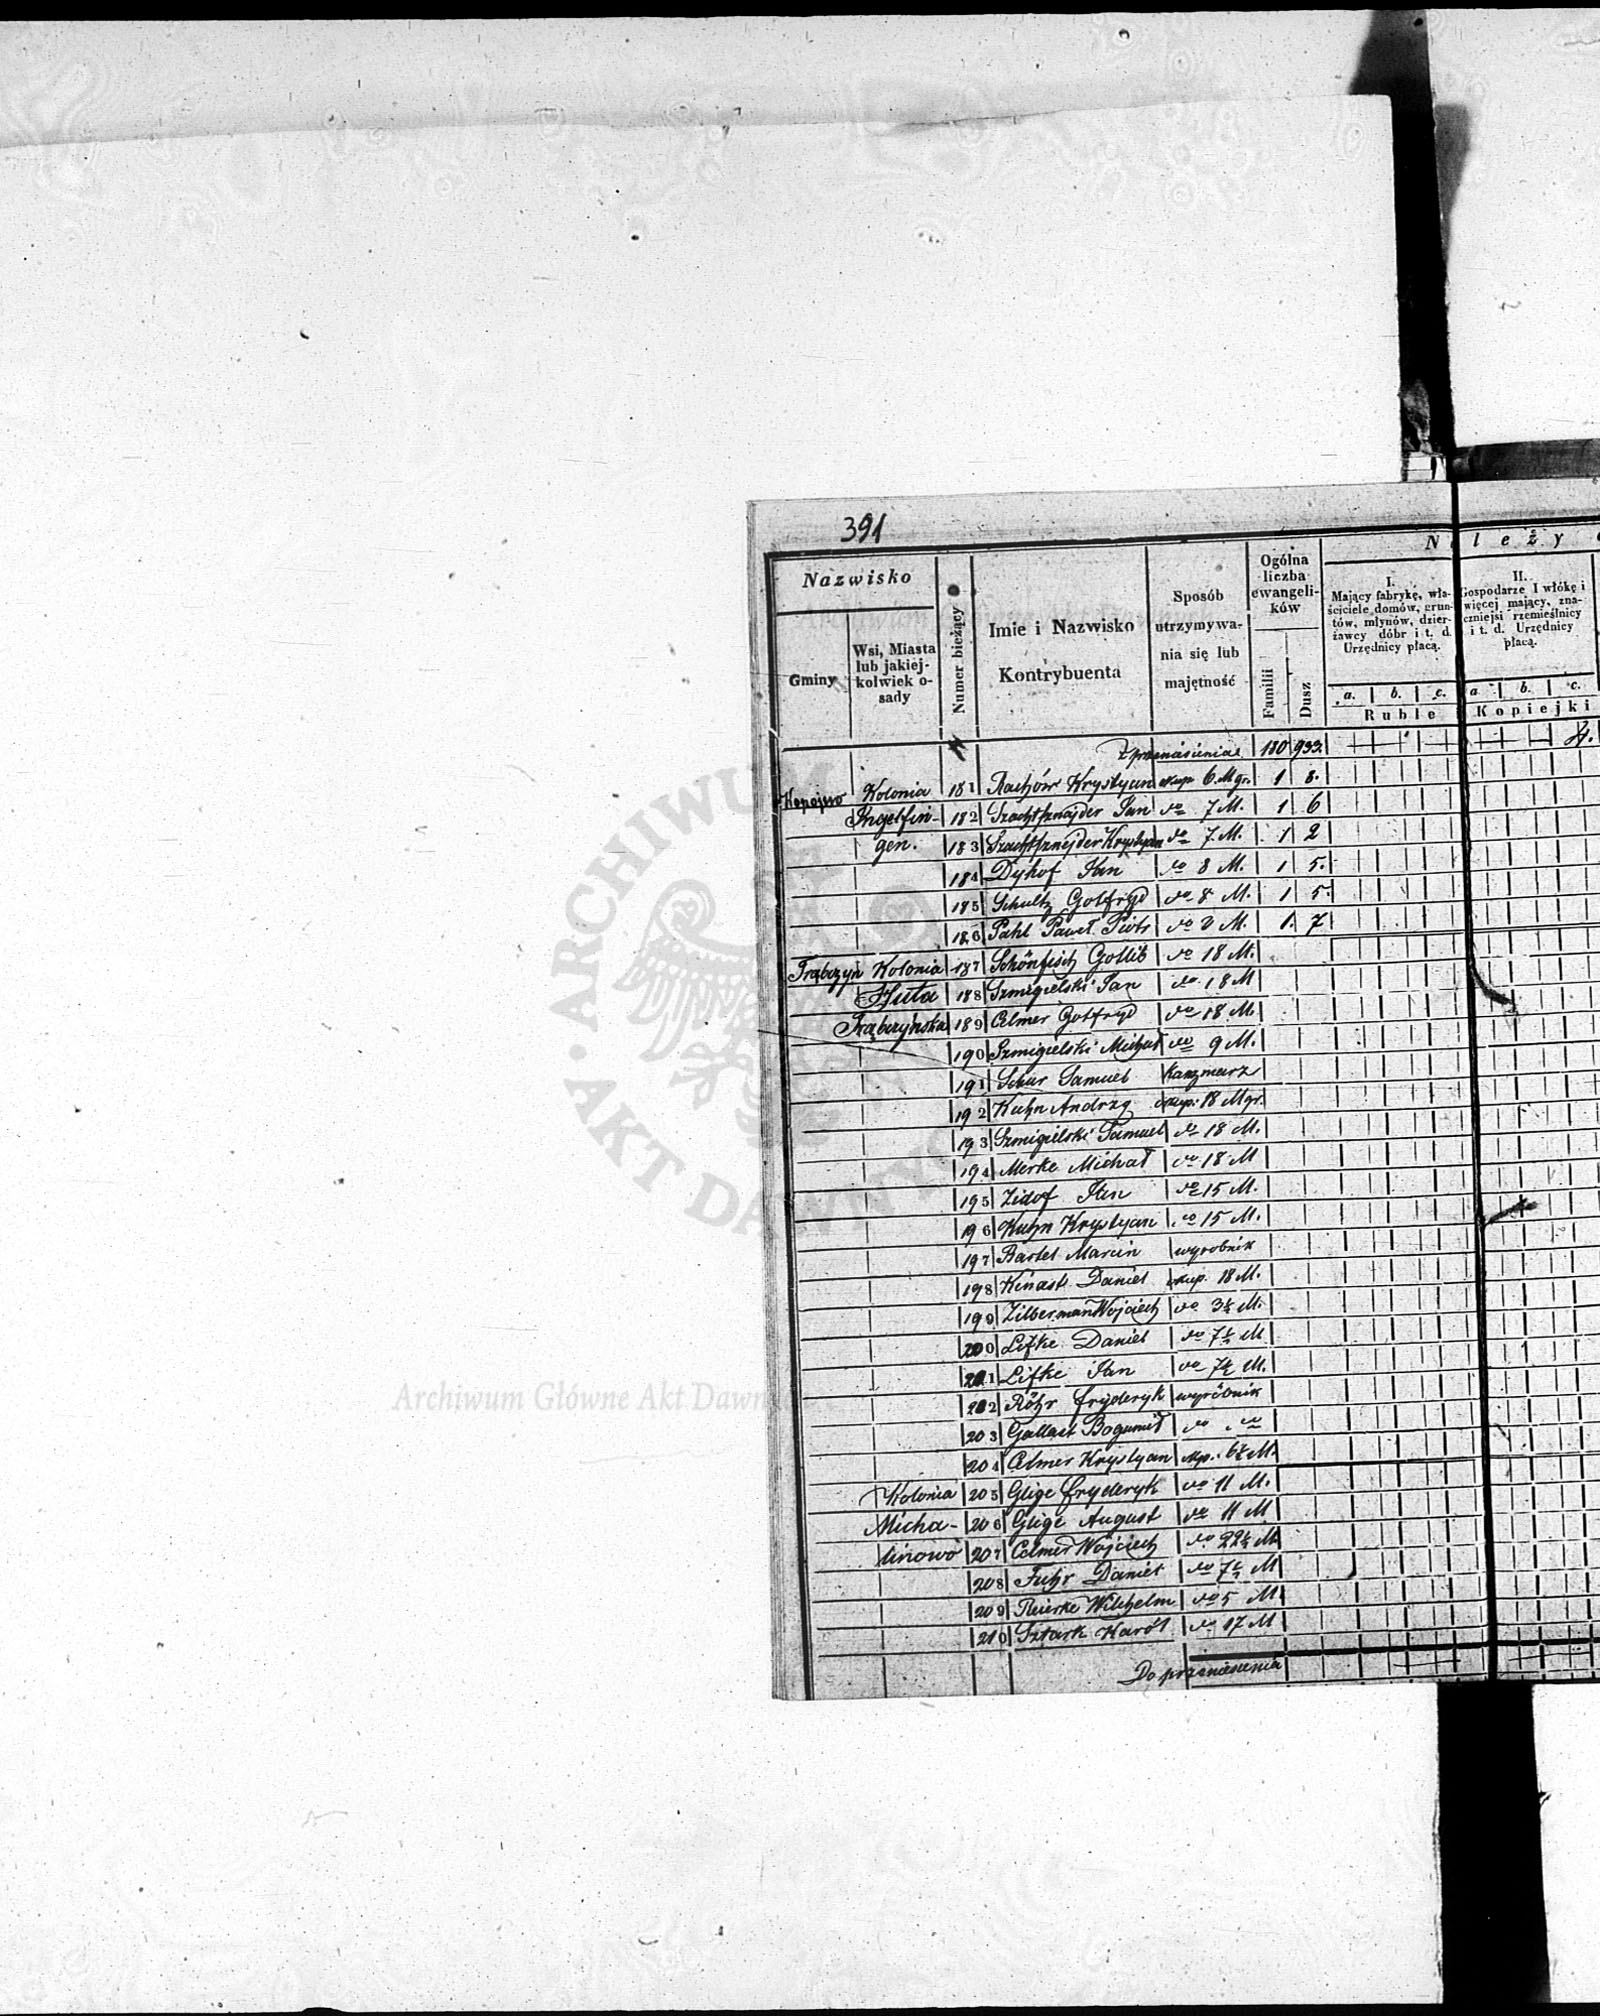 391
Nazwisko
Gminy
Wsi, Miasta
lub jakiej-
kolwiek o-
sady
Numer bieżący
Imie i Nazwisko
Kontrybuenta
Sposób
utrzymywa-
nia się lub
majętność
Ogólna
liczba
ewangeli-
ków
Familii
Dusz
Należy
I.
Mający fabrykę, wła-
ściciele domów, grun-
tów, młynów, dzier-
żawcy dóbr i t. d.
Urzędnicy płacą.
II.
Gospodarze I włókę i
więcej mający, zna-
czniejsi rzemieślnicy
i t. d. Urzędnicy
płacą.
a. b. c. a b. c.
Ruble Kopiejki
Z przeniesienia 180 933. 4.
Kolonia 181 Rachów Krystyan okup 6. Mgr. 1 8.
Ingelfin- 182 Szachtsznajder Jan do 7 M. 1 6
gen. 183 Szachtsznejder Krystyan do 7. M. 1 2
184 Dyhof Jan do 8 M. 1 5.
185 Schultz Gotfryd do 8 M. 1 5.
186 Pahl Paweł Piotr do 8 M. 1. 7
Trąbczyn Kolonia 187 Schönfisch Gotlib do 18 M.
Huta 188 Szmigielski Jan do 18 M
Trąbczyńska 189 Celmer Gotfryd do 18 M.
190 Szmigielski Michał do 9 M.
191 Schur Samuel Karczmarz
192 Kuhn Andrzej okup: 18 Mgr.
193 Szmigielski Samuel do 18 M.
194 Merke Michał do 18 M
195 Zidof Jan do 15 M.
196 Kuhn Krystyan do 15 M.
197 Bartel Marcin wyrobnik
198 Kinast Daniel okup. 18 M.
199 Zilberman Wojciech do 3½ M.
200 Lifke Daniel do 7½ M
201 Lifke Jan do 7½ M.
202 Röhr Fryderyk wyrobnik
203 Gallast Bogumił do do
204 Celmer Krystyan okp. 6½ M.
Kolonia 205 Glige Fryderyk do 11 M.
Micha- 206 Glige August do 11 M
linowo 207 Celmer Wojciech do 22½ M
208 Fuhr Daniel do 7½ M
209 Reierke Wilhelm do 5 M.
210 Sztark Karól do 17 M
Do przeniesienia
ARCHIWUM
AKT DAWNYCH
Archiwum Główne Akt Dawnych